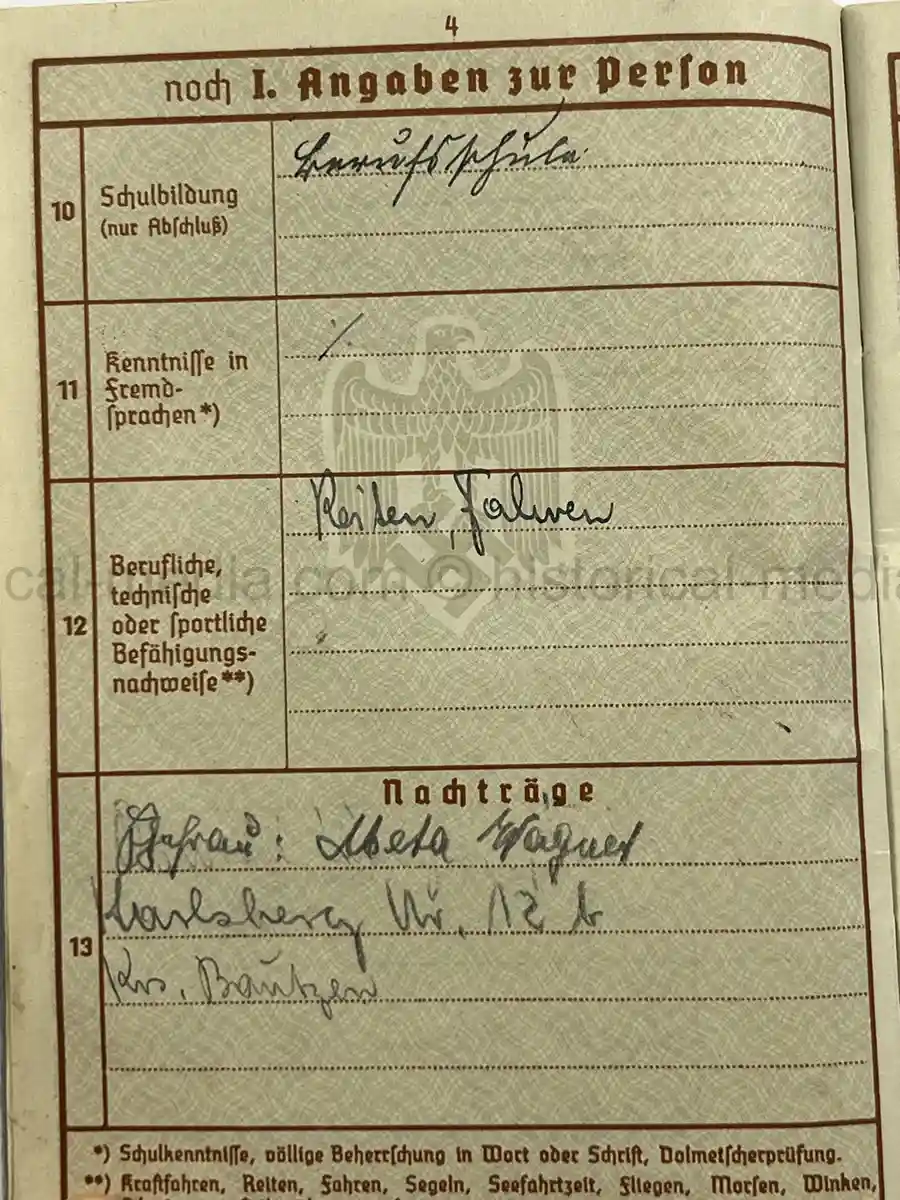 4
noch I. Angaben zur Person
10
Schulbildung
(nur Abschluß)
Berufsschule
11
Kenntnisse in
Fremd-
sprachen*)
·/.
12
Berufliche,
technische
oder sportliche
Befähigungs-
nachweise**)
Reiten, Fahren
Nachträge
13
Ehefrau: Meta Wagner
Karlsberg Nr. 12 b
Krs. Bautzen
*) Schulkenntnisse, völlige Beherrschung in Wort oder Schrift, Dolmetscherprüfung.
**) Kraftfahren, Reiten, Fahren, Segeln, Seefahrtzeit, Fliegen, Morsen, Winken,
© historical-media